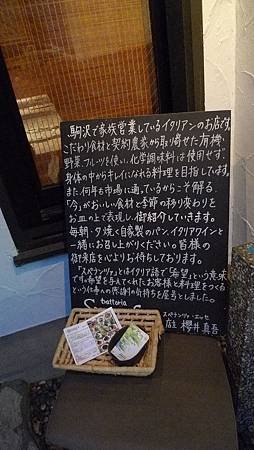 駒沢で家族営業しているイタリアンのお店です。
こだわり食材と契約農家から取り寄せた有機
野菜、フルーツを使い、化学調味料は使用せず
身体の中からキレイになれる料理を目指しています。
また、何年も市場に通っているからこそ解る、
「今」がおいしい食材と季節の移り変わりを
お皿の上で表現し、御紹介していきます。
毎朝・夕焼く自製のパン、イタリアワインと
一緒にお召し上がりください。皆様の
御来店を心よりお待ちしております。
「スペランツァ」とはイタリア語で「希望」という意味
です。希望を与えてくれたお客様と料理をつくる
という仕事への感謝の気持ちを屋号としました。
trattoria
スペランツァ・エッセ
店主 櫻井真吾